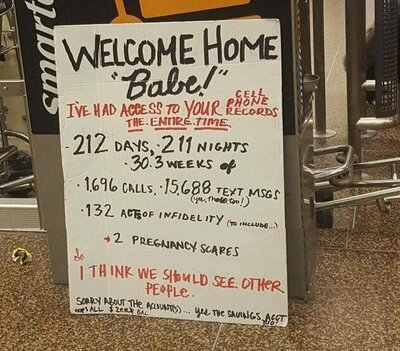 smarte
WELCOME HOME
"Babe!"
I'VE HAD ACCESS TO YOUR CELL PHONE RECORDS
THE ENTIRE TIME.
212 DAYS, 211 NIGHTS
30.3 WEEKS of
• 1,696 CALLS, • 15,688 TEXT MSGS
(yes, those too!)
• 132 ACTS OF INFIDELITY (TO INCLUDE...)
→ 2 PREGNANCY SCARES
So
I THINK WE SHOULD SEE OTHER
PEOPLE.
SORRY ABOUT THE ACCOUNT(S)... yes THE SAVINGS ACCT
ALL $ ZERO BAL